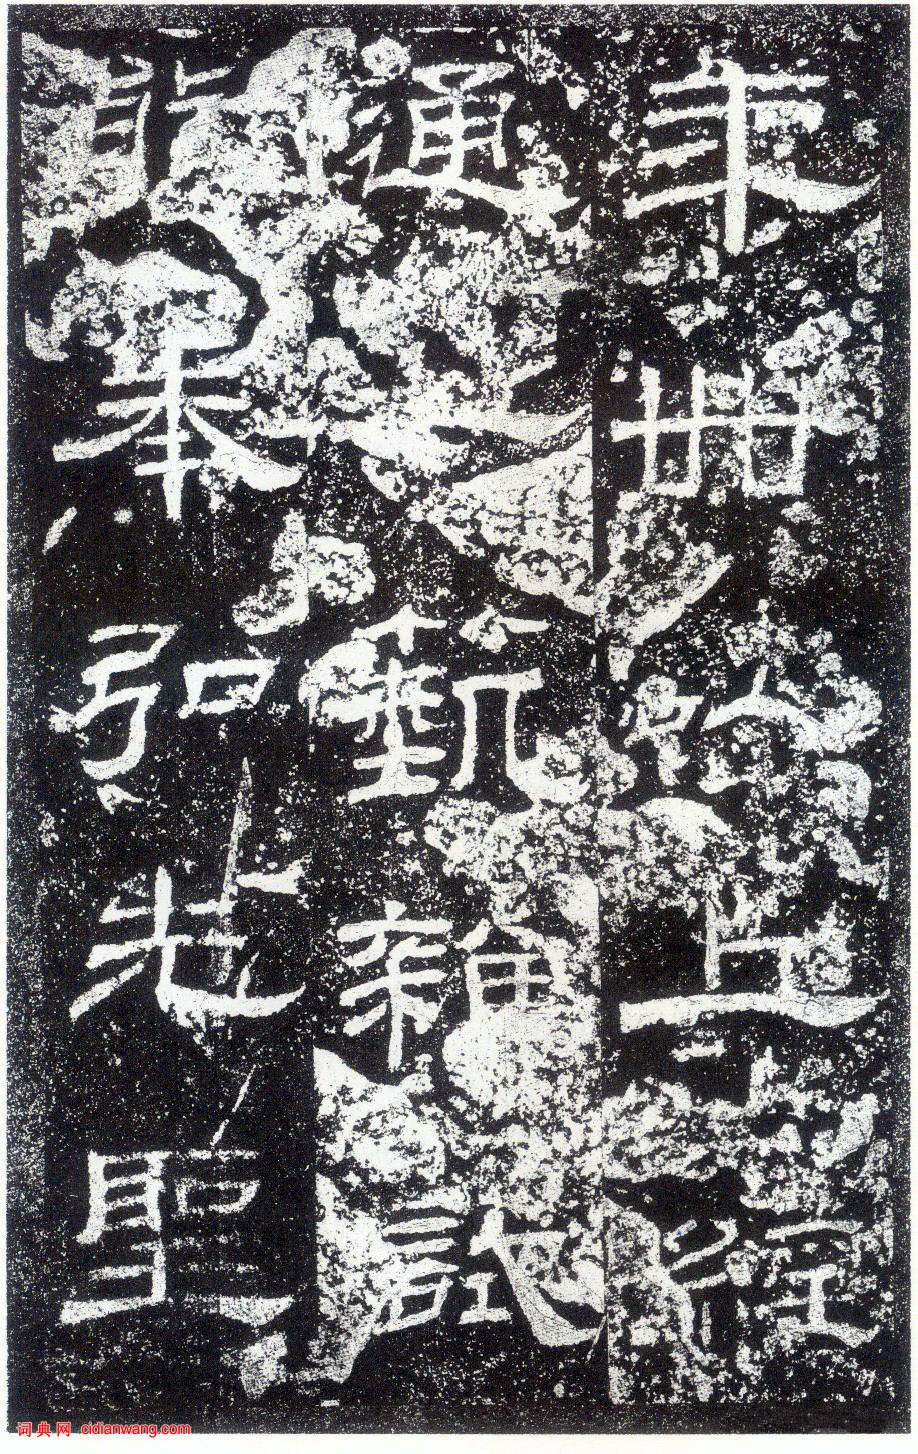 年卌以上經
通一藝雜試
能奉弘先聖
词典网 cidianwang.com